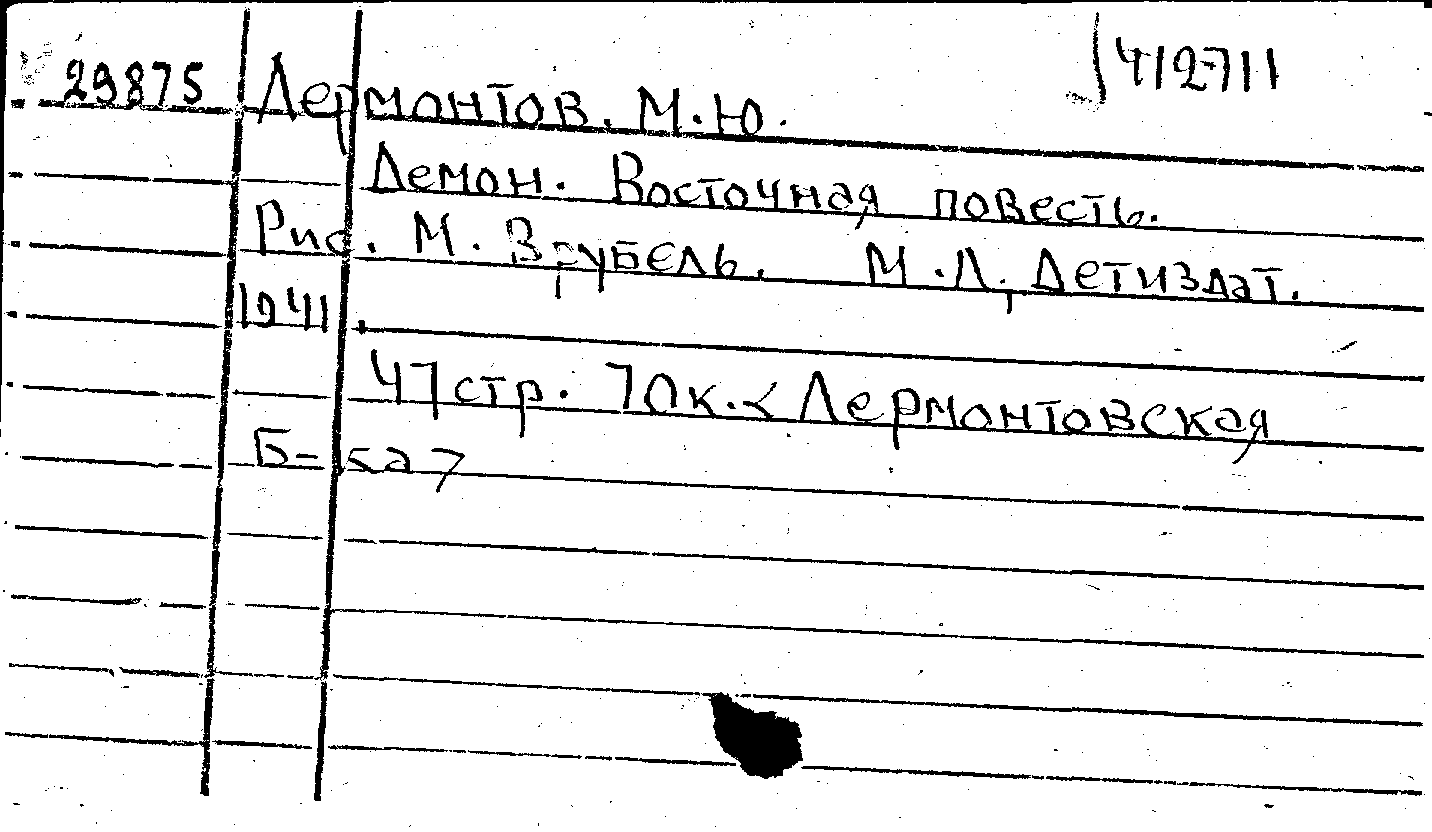 412-711
29875 Лермонтов. М.Ю.
Демон. Восточная повесть.
Рис. М. Врубель. М.Л, Детиздат.
1941.
47стр. 70к.< Лермонтовская
Б-ка>